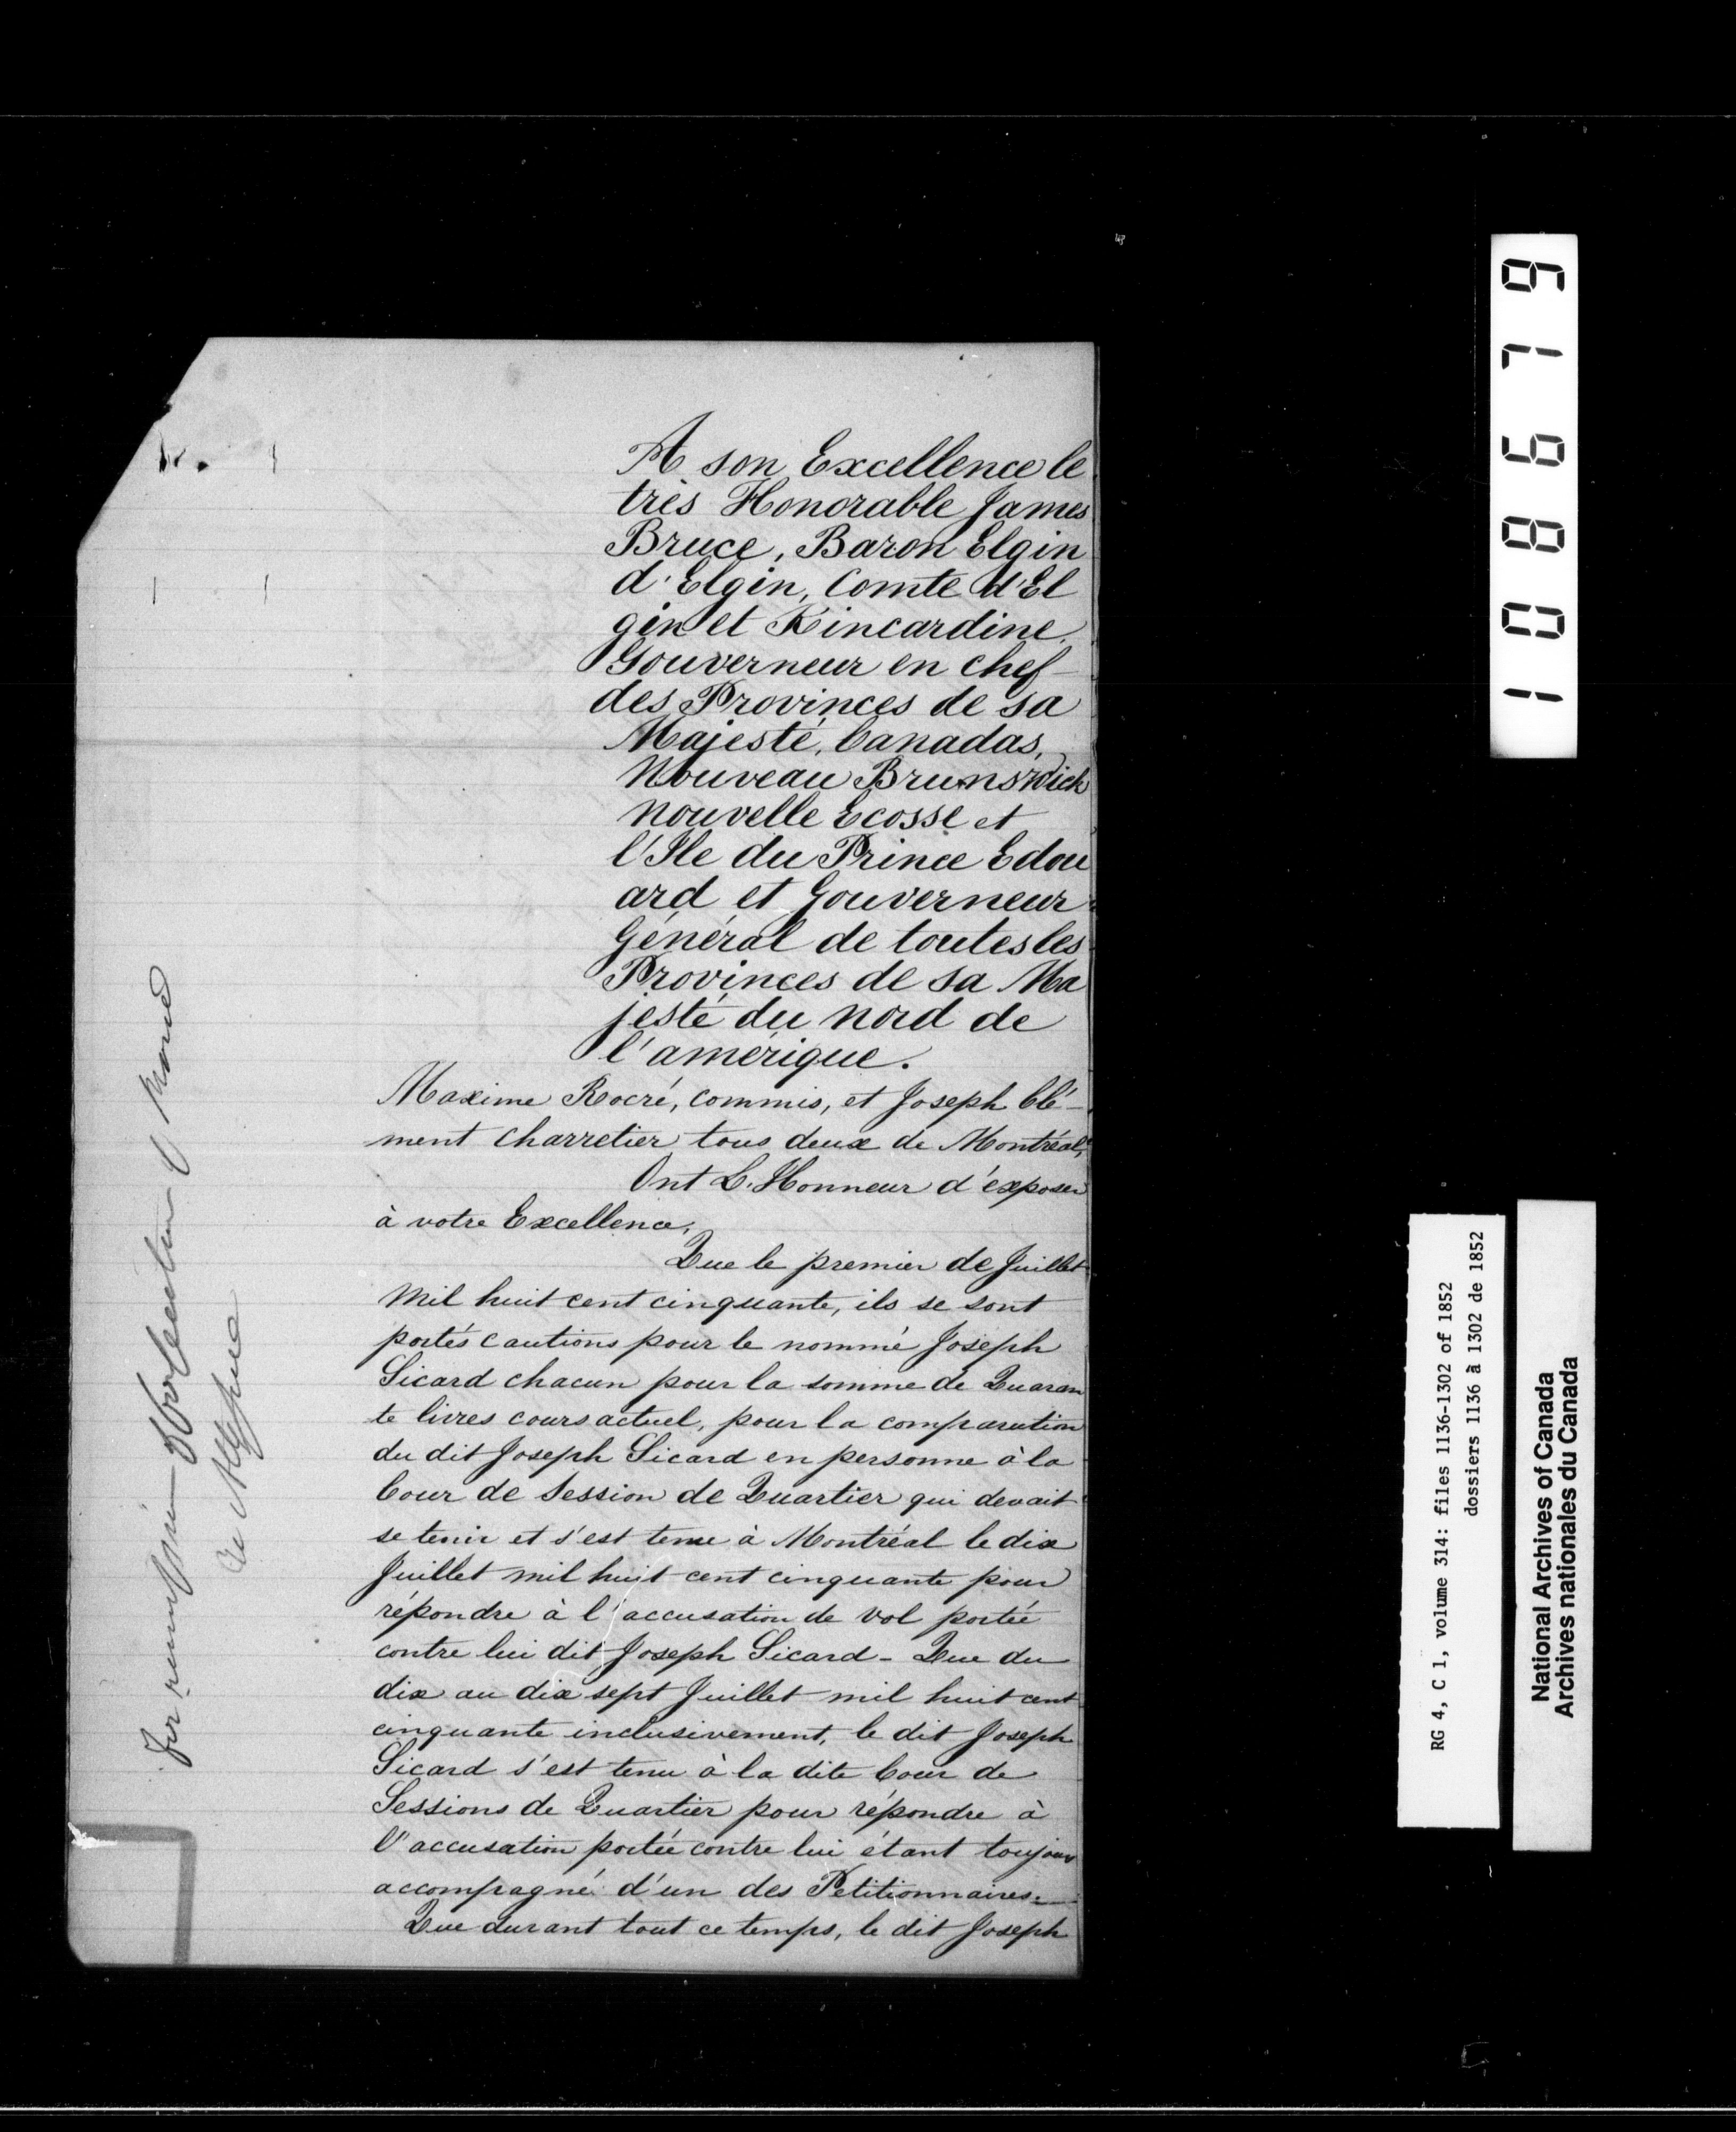 A son Excellence le
très Honorable James
Bruce, Baron Elgin
d'Elgin, Comte d'El
gin et Kincardine,
Gouverneur en chef
des Provinces de sa
Majesté, Canadas,
Nouveau Brunswick
Nouvelle Ecosse et
l'Ile du Prince Edou
ard et Gouverneur
Général de toutes les
Provinces de sa Ma
jesté du nord de
l'amérique.
Maxime Rocré, commis, et Joseph Clé-
ment Charretier tous deux de Montréal,
Ont L'Honneur d'exposer
à votre Excellence,
Que le premier de Juillet
Mil huit cent cinquante, ils se sont
portés cautions pour le nommé Joseph
Sicard chacun pour la somme de Quaran
te livres cours actuel, pour la comparution
du dit Joseph Sicard en personne à la
Cour de Session de Quartier qui devait
se tenir et s'est tenue à Montréal le dix
Juillet mil huit cent cinquante pour
répondre à l'accusation de vol portée
contre lui dit Joseph Sicard - Que du
dix au dix sept Juillet mil huit cent
cinquante inclusivement, le dit Joseph
Sicard s'est tenu à la dite Cour de
Sessions de Quartier pour répondre à
l'accusation portée contre lui étant toujour
accompagné d'un des Petitionnaires.
Que durant tout ce temps, le dit Joseph
For
108679
RG 4, C 1, volume 314: files 1136-1302 of 1852
dossiers 1136 à 1302 de 1852
National Archives of Canada
Archives nationales du Canada